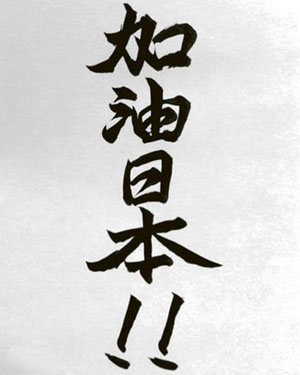 加油日本!!